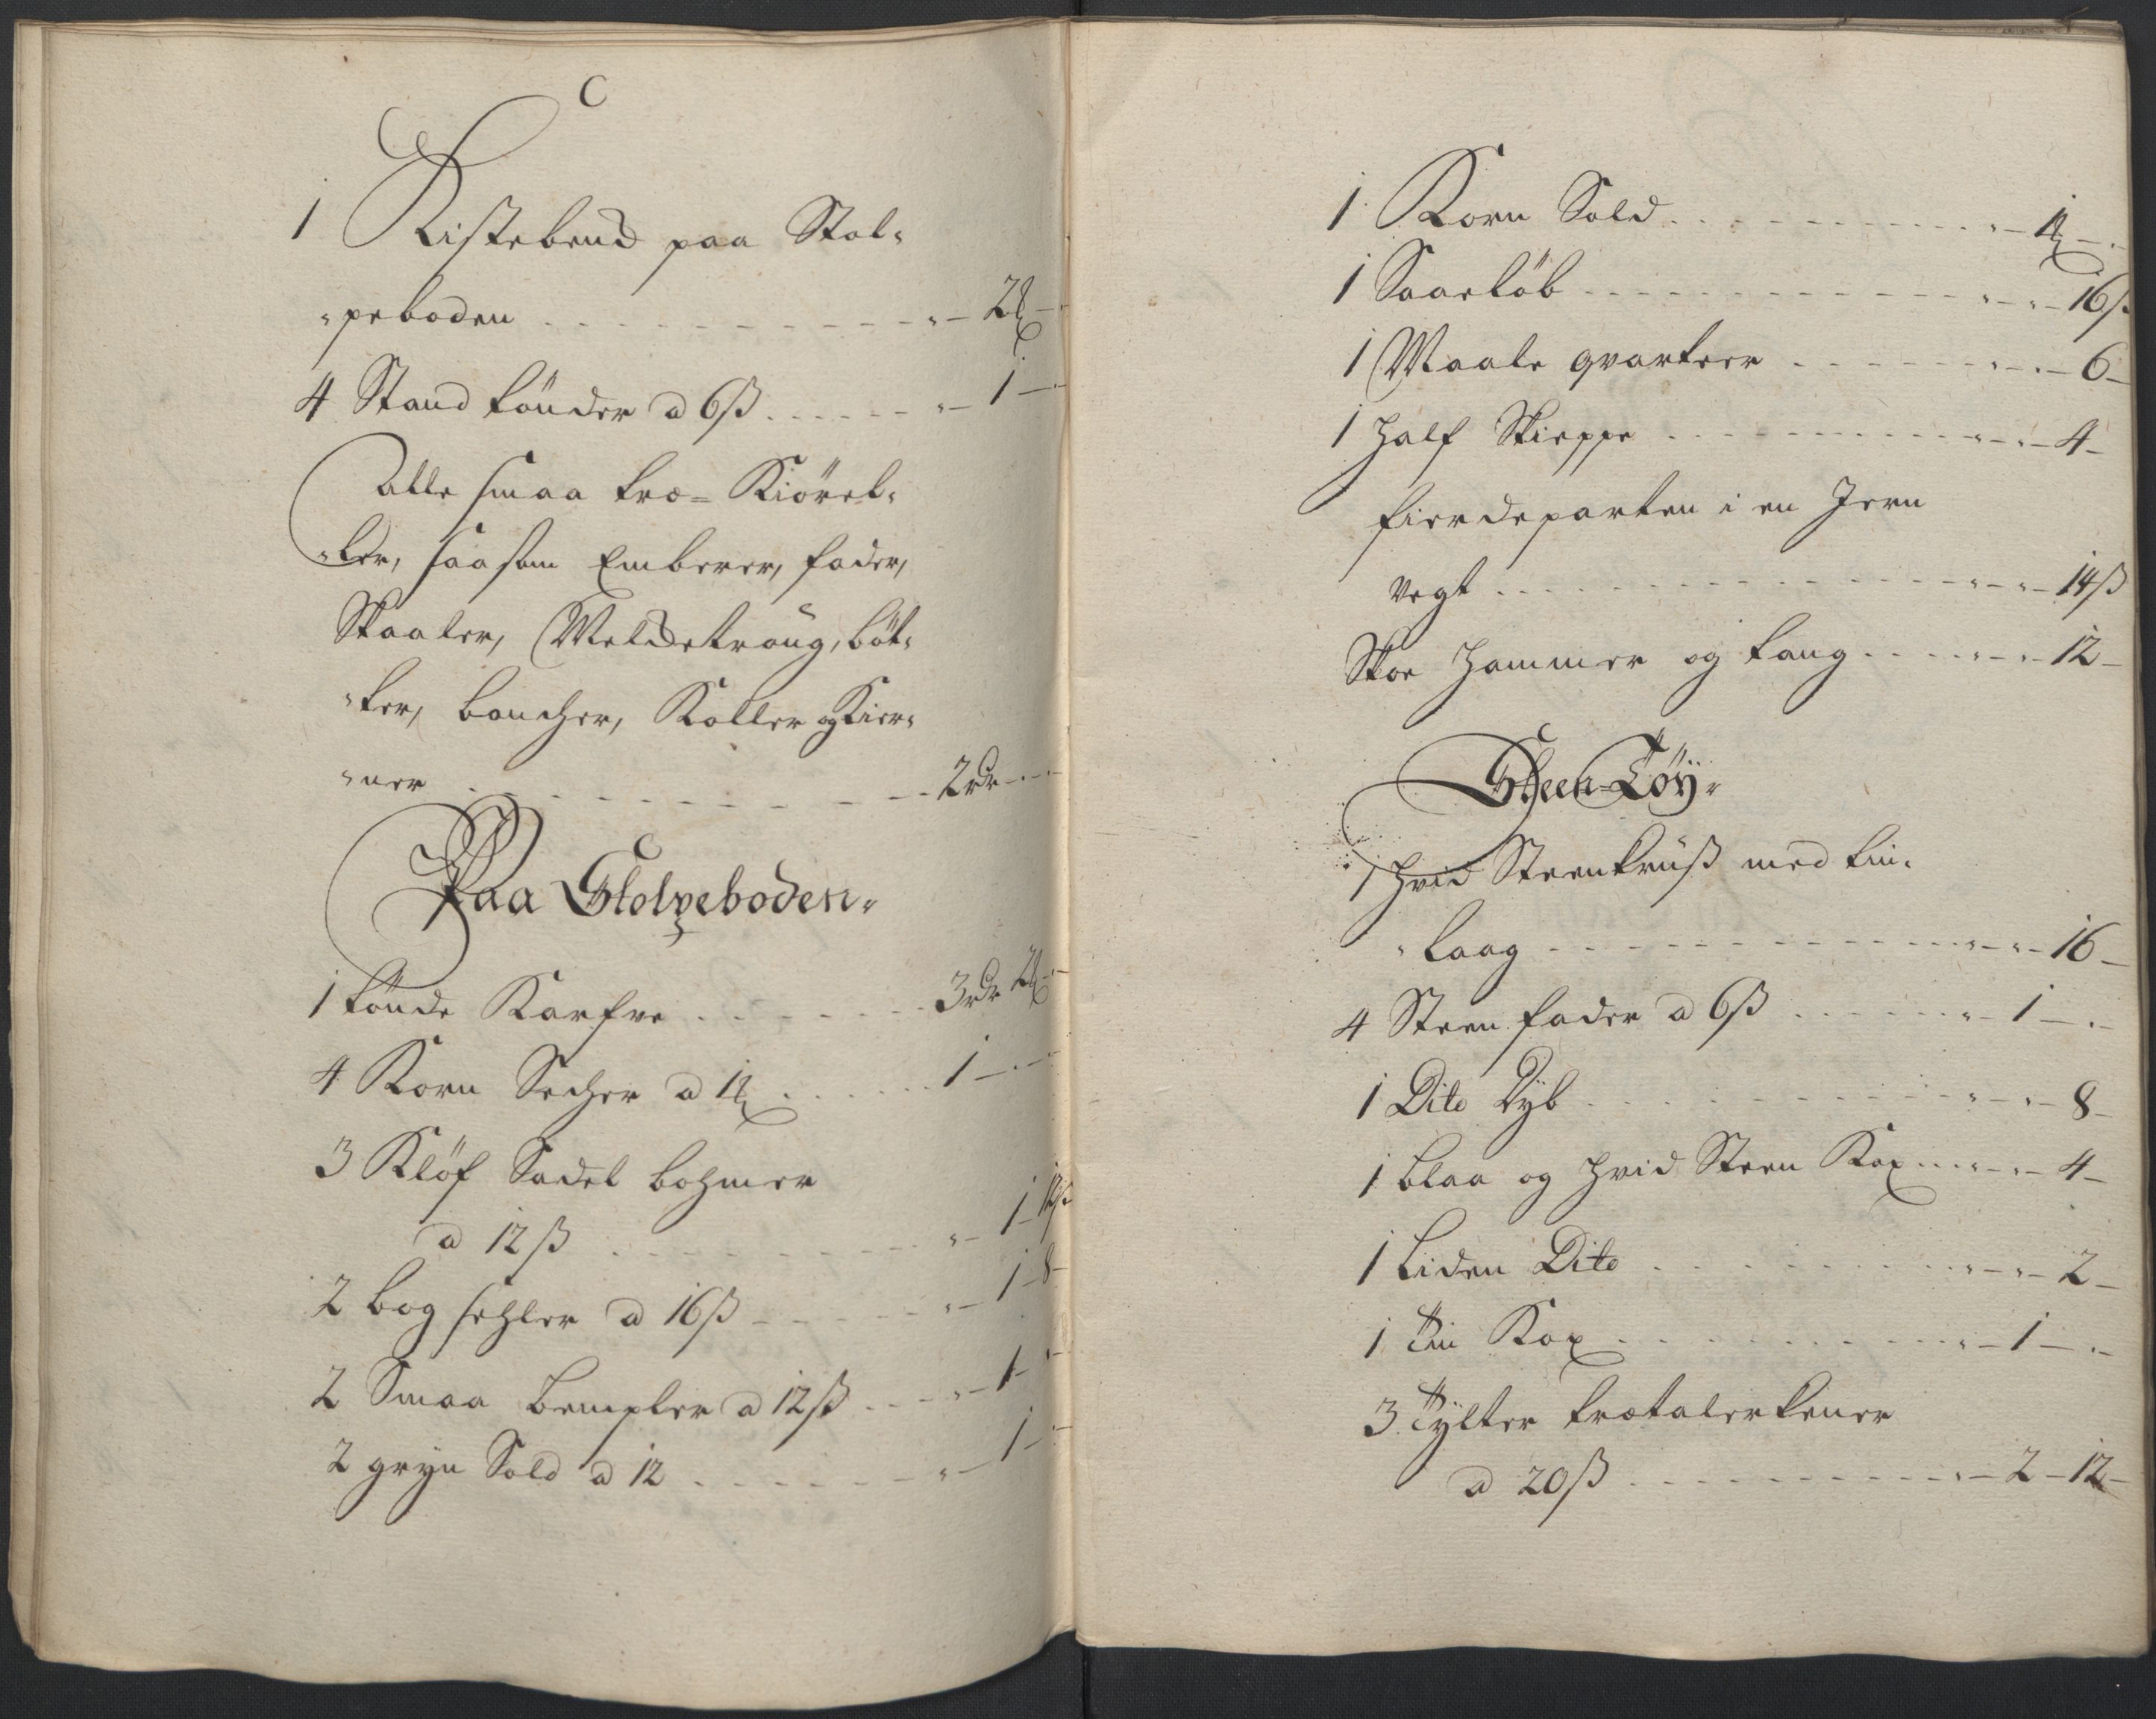 1 Kistebend paa Stol-
-peboden - 2 #
4 Stand tönder a 6ß - 1 -
Alle smaa træ-Kiörel-
-ler, saasom Emberer, fader,
Skaaler, Meldetroug, böt-
-ker, boucher, Koller og Kier-
-ner - 2 rdr -
Paa Stolpeboden.
1 tönde Karfve - 3 rdr 2 #
4 Korn Secher a 1 # - 1 -
3 Klöf Sadel bohmer
a 12ß - 1 - 12ß
2 bog sehler a 16ß - 1 - 8 -
2 Smaa bempler a 12ß - 1 -
2 gryn Sold a 12 - 1 -
1 Korn Sold - 1 #
1 Saaeløb - 16ß
1 Maale qvarteer - 6 -
1 half Skieppe - 4 -
fierdeparten i en Jern
vegt - 14ß
Skoe hammer og tang - 12 -
Steen-Töÿ.
1 hvid Steenkruß med tin-
-laag - 16 -
4 Steen fader a 6ß - 1 -
1 Dito Dyb - 8 -
1 blaa og hvid Steen Kop - 4 -
1 liden Dito - 2 -
1 Tin Kop - 1 -
3 Tylter trætalerkener
a 20ß - 2 - 12 -